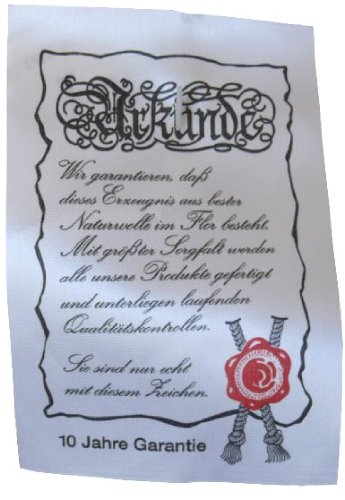 Urkunde
Wir garantieren, daß
dieses Erzeugnis aus bester
Naturwolle im Flor besteht.
Mit größter Sorgfalt werden
alle unsere Produkte gefertigt
und unterliegen laufenden
Qualitätskontrollen.
Sie sind nur echt
mit diesem Zeichen.
10 Jahre Garantie